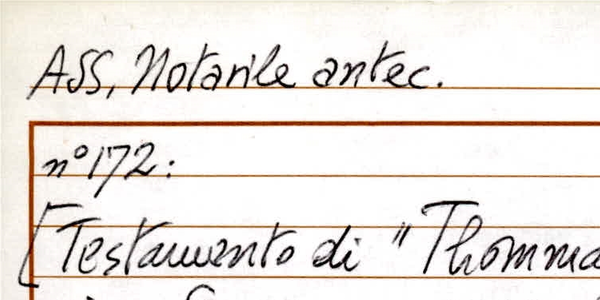 ASS, Notarile antec.
n° 172:
[Testamento di "Thomma